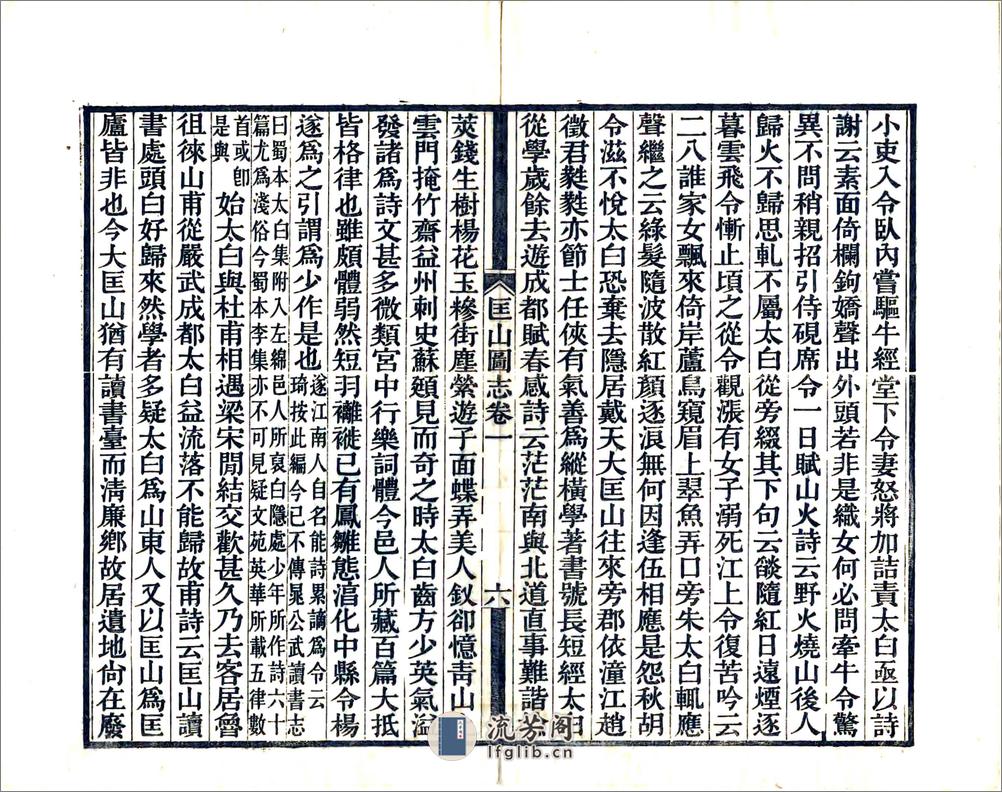 小吏入令臥內嘗驅牛經堂下令妻怒將加詰責太白亟以詩
謝云素面倚欄鉤嬌聲出外頭若非是織女何必問牽牛令驚
異不問稍親招引侍硯席令一日賦山火詩云野火燒山後人
歸火不歸思軋不屬太白從旁綴其下句云燄隨紅日遠煙逐
暮雲飛令慚止頃之從令觀漲有女子溺死江上令復苦吟云
二八誰家女飄來倚岸蘆鳥窺眉上翠魚弄口旁朱太白輒應
聲繼之云綠髮隨波散紅顏逐浪無何因逢伍相應是怨秋胡
令滋不悅太白恐棄去隱居戴天大匡山往來旁郡依潼江趙
徵君蕤蕤亦節士任俠有氣善爲縱橫學著書號長短經太白
從學歲餘去遊成都賦春感詩云茫茫南與北道直事難諧榆
匡山圖志卷一
六
莢錢生樹楊花玉糝街塵縈遊子面蝶弄美人釵卻憶靑山上
雲門掩竹齋益州刺史蘇頲見而奇之時太白齒方少英氣溢
發諸爲詩文甚多微類宮中行樂詞體今邑人所藏百篇大抵
皆格律也雖頗體弱然短羽褵褷已有鳳雛態淯化中縣令楊
遂爲之引謂爲少作是也遂江南人自名能詩累謫爲令云
琦按此編今已不傳晁公武讀書志
曰蜀本太白集附入左綿邑人所裒白隱處少年所作詩六十
篇尤爲淺俗今蜀本李集亦不可見疑文苑英華所載五律數
首或卽
是與
始太白與杜甫相遇梁宋閒結交歡甚久乃去客居魯
徂徠山甫從嚴武成都太白益流落不能歸故甫詩云匡山讀
書處頭白好歸來然學者多疑太白爲山東人又以匡山爲匡
廬皆非也今大匡山猶有讀書臺而淸廉鄉故居遺地尙在廢
流芳阁
lfglib.cn